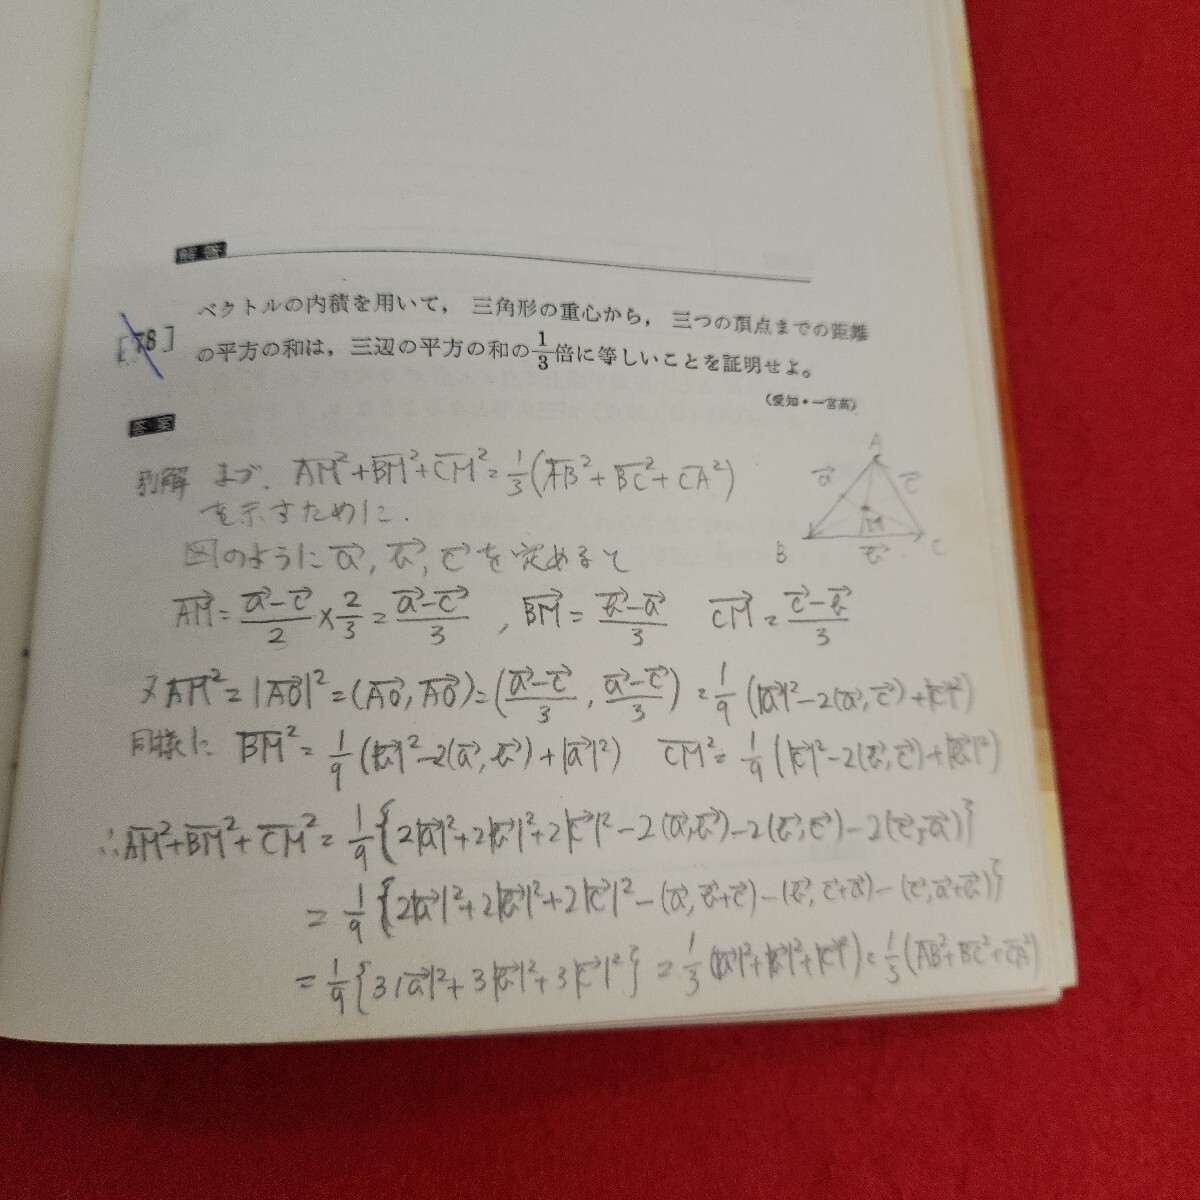 解答
[78]
ベクトルの内積を用いて，三角形の重心から，三つの頂点までの距離
の平方の和は，三辺の平方の和の1/3倍に等しいことを証明せよ。
(愛知・一宮高)
答案
別解 まず. AM̅²+BM̅²+CM̅²=1/3(AB̅²+BC̅²+CA̅²)
を示すために.
図のように a⃗, b⃗, c⃗ を定めると
A
a⃗ c⃗
M
B b⃗ C
AM⃗ = (a⃗-c⃗)/2 × 2/3 = (a⃗-c⃗)/3 , BM⃗ = (b⃗-a⃗)/3 CM⃗ = (c⃗-b⃗)/3
又 AM̅² = |AO⃗|² = (AO⃗, AO⃗) = ((a⃗-c⃗)/3 , (a⃗-c⃗)/3) = 1/9 (|a⃗|²-2(a⃗,c⃗)+|c⃗|²)
同様に BM̅² = 1/9 (|b⃗|²-2(a⃗,b⃗)+|a⃗|²) CM̅² = 1/9 (|c⃗|²-2(b⃗,c⃗)+|b⃗|²)
∴ AM̅²+BM̅²+CM̅² = 1/9 {2|a⃗|²+2|b⃗|²+2|c⃗|²-2(a⃗,b⃗)-2(b⃗,c⃗)-2(c⃗,a⃗)}
= 1/9 {2|a⃗|²+2|b⃗|²+2|c⃗|²-(a⃗,b⃗+c⃗)-(b⃗,c⃗+a⃗)-(c⃗,a⃗+b⃗)}
= 1/9 {3|a⃗|²+3|b⃗|²+3|c⃗|²} = 1/3 (|a⃗|²+|b⃗|²+|c⃗|²) = 1/3 (AB̅²+BC̅²+CA̅²)